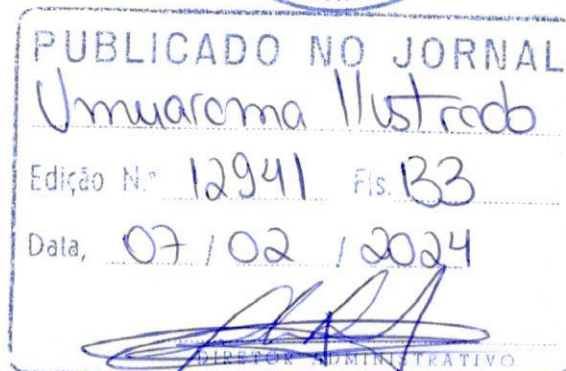 PUBLICADO NO JORNAL
Umuarama Ilustrado
Edição N.º 12941 Fls. B3
Data, 07 / 02 / 2024
DIRETOR ADMINISTRATIVO